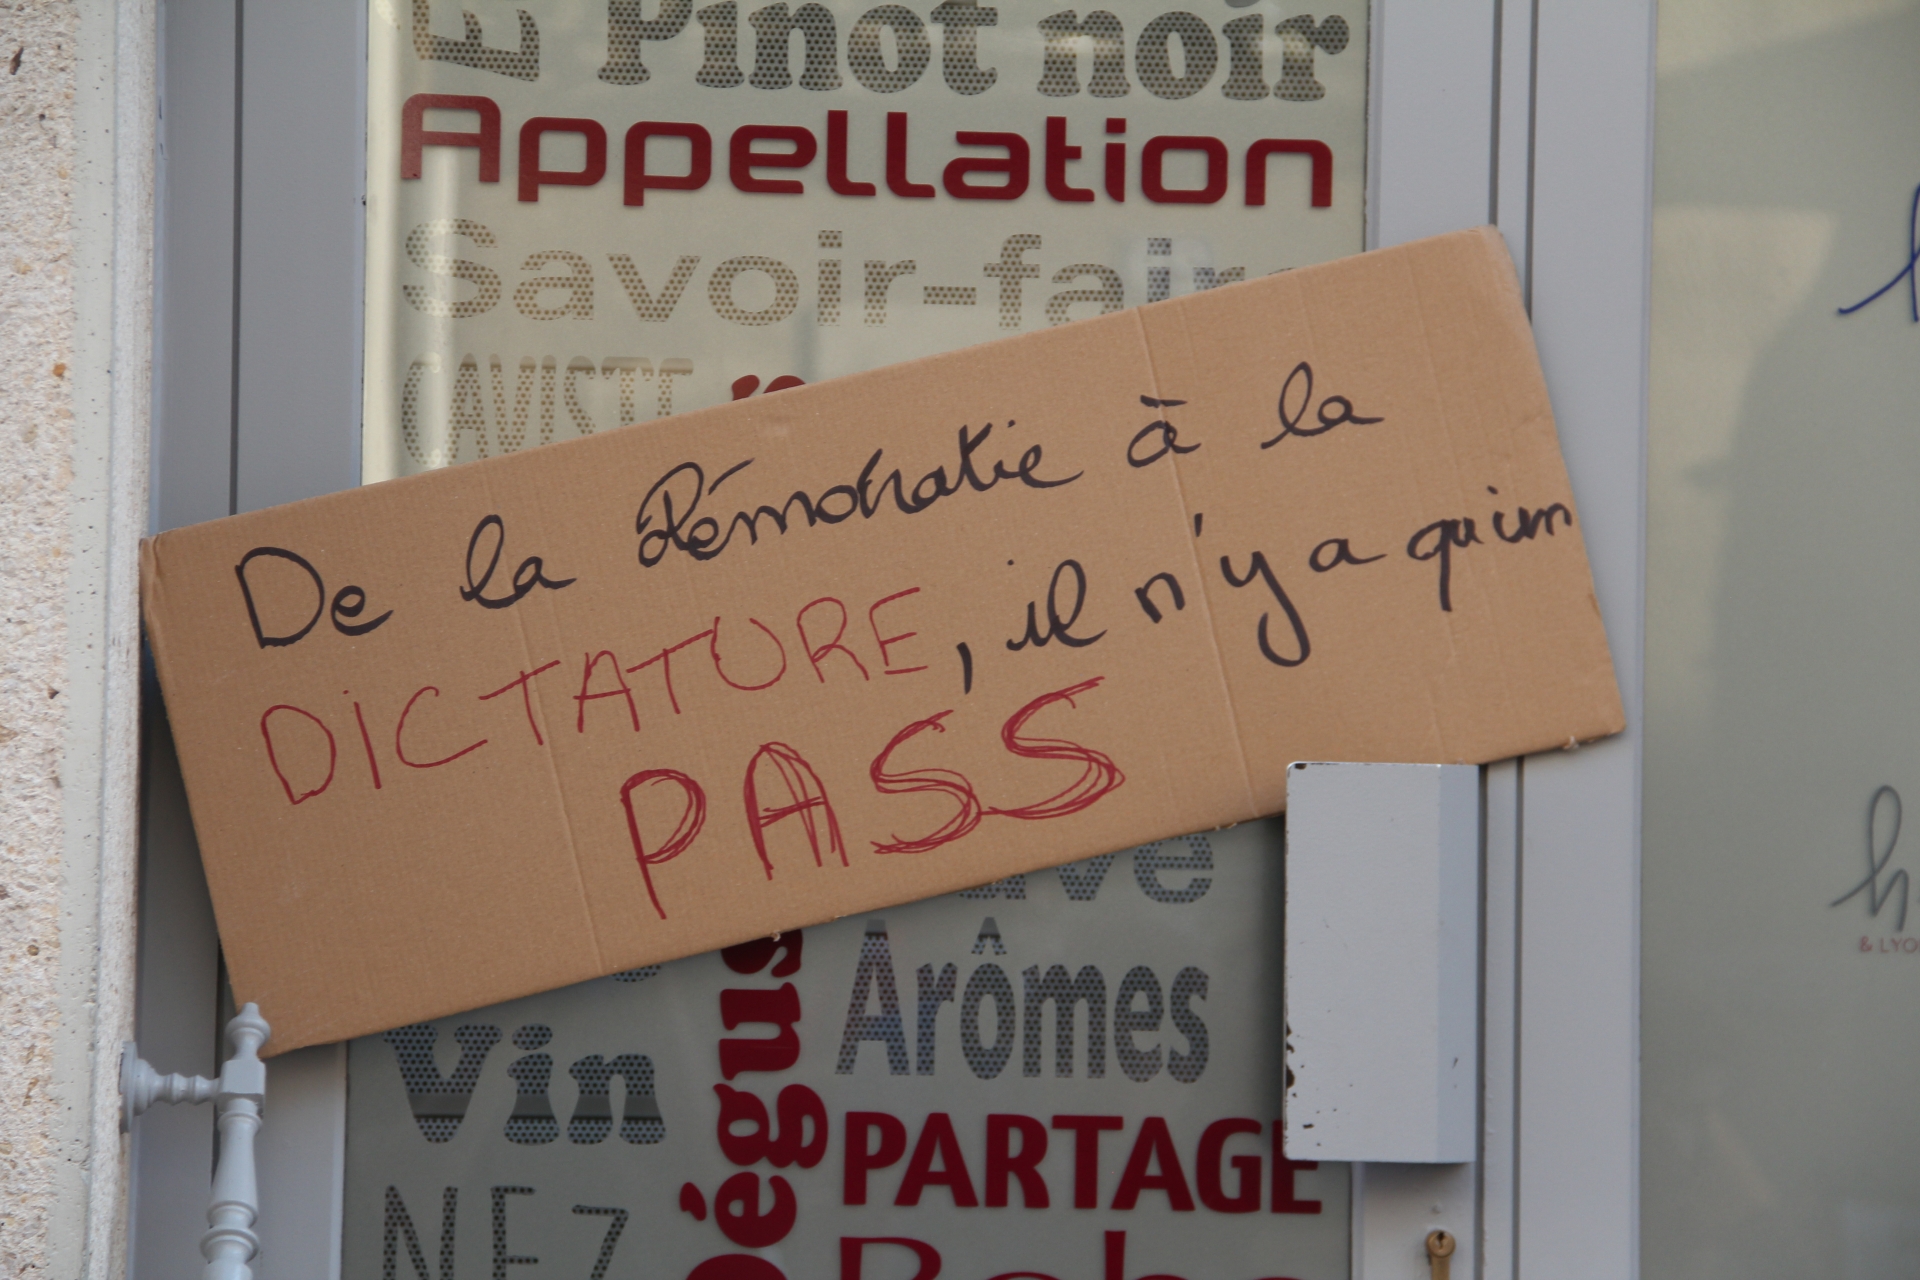 Pinot noir
Appellation
Savoir-faire
CAVISTE
De la Démocratie à la
DICTATURE, il n'y a qu'un
PASS
Arômes
Vin
Dégus
PARTAGE
NEZ
& LYO